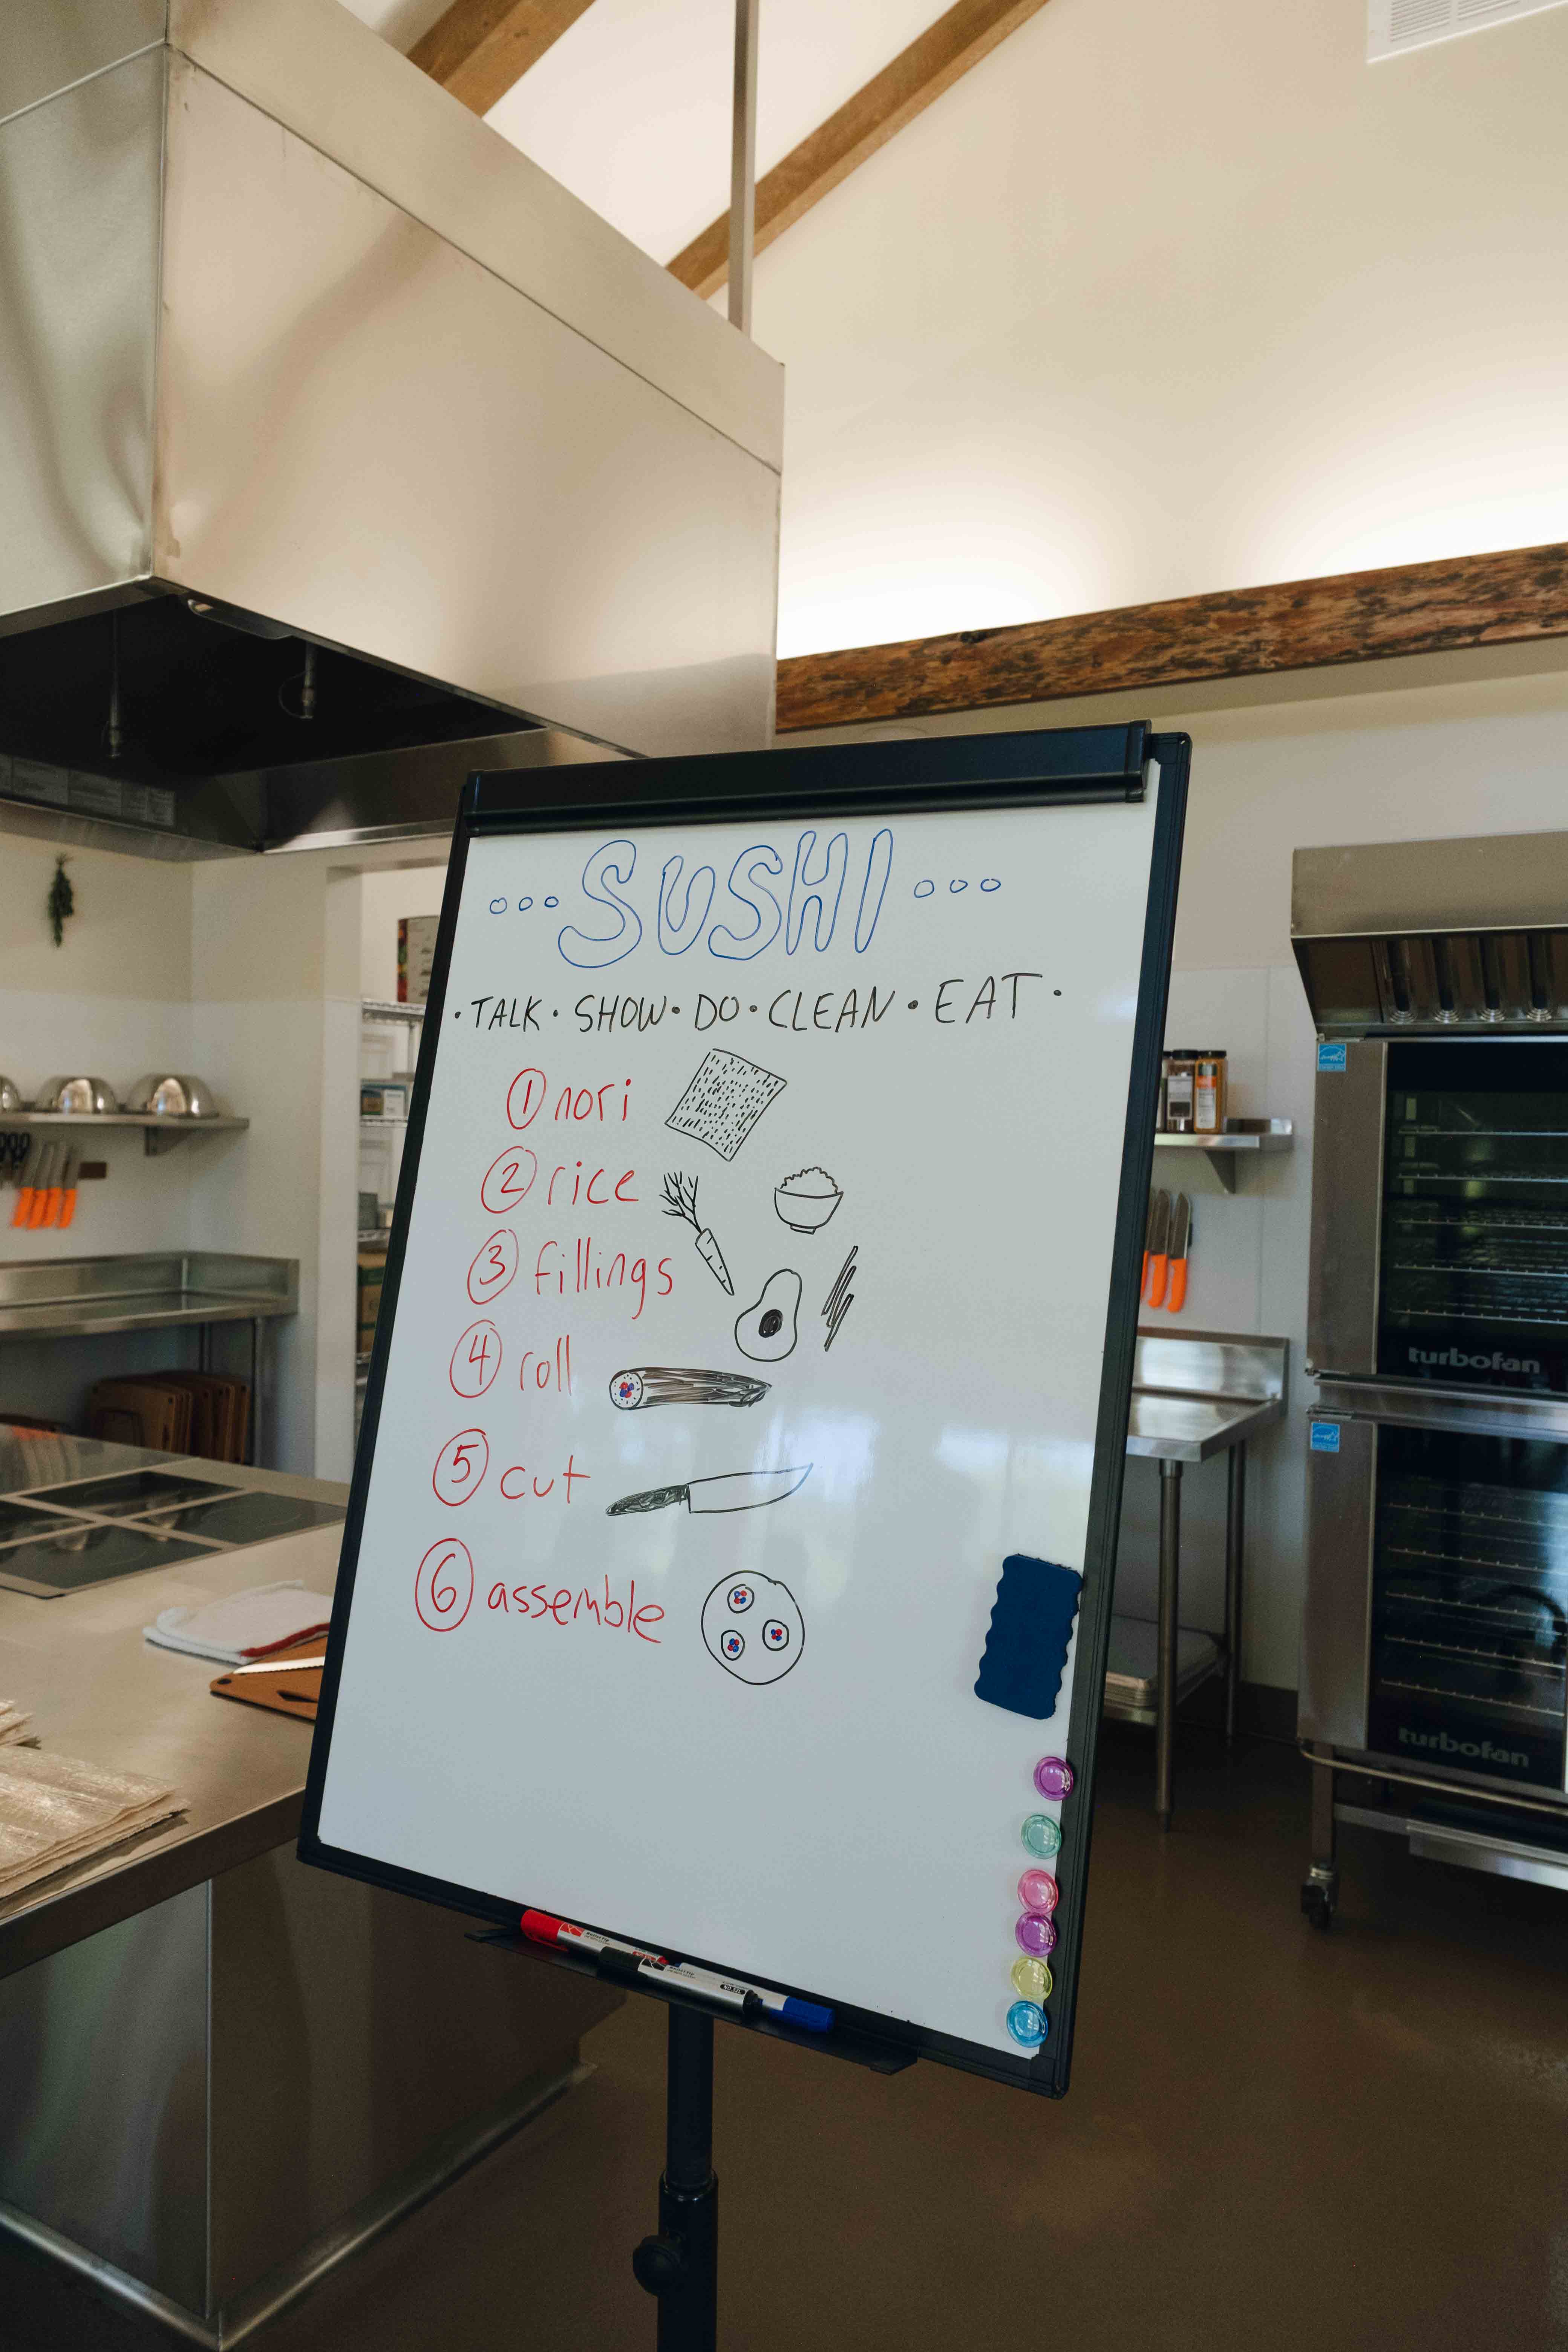 SUSHI
· TALK · SHOW · DO · CLEAN · EAT ·
1 nori
2 rice
3 fillings
4 roll
5 cut
6 assemble
turbofan
turbofan